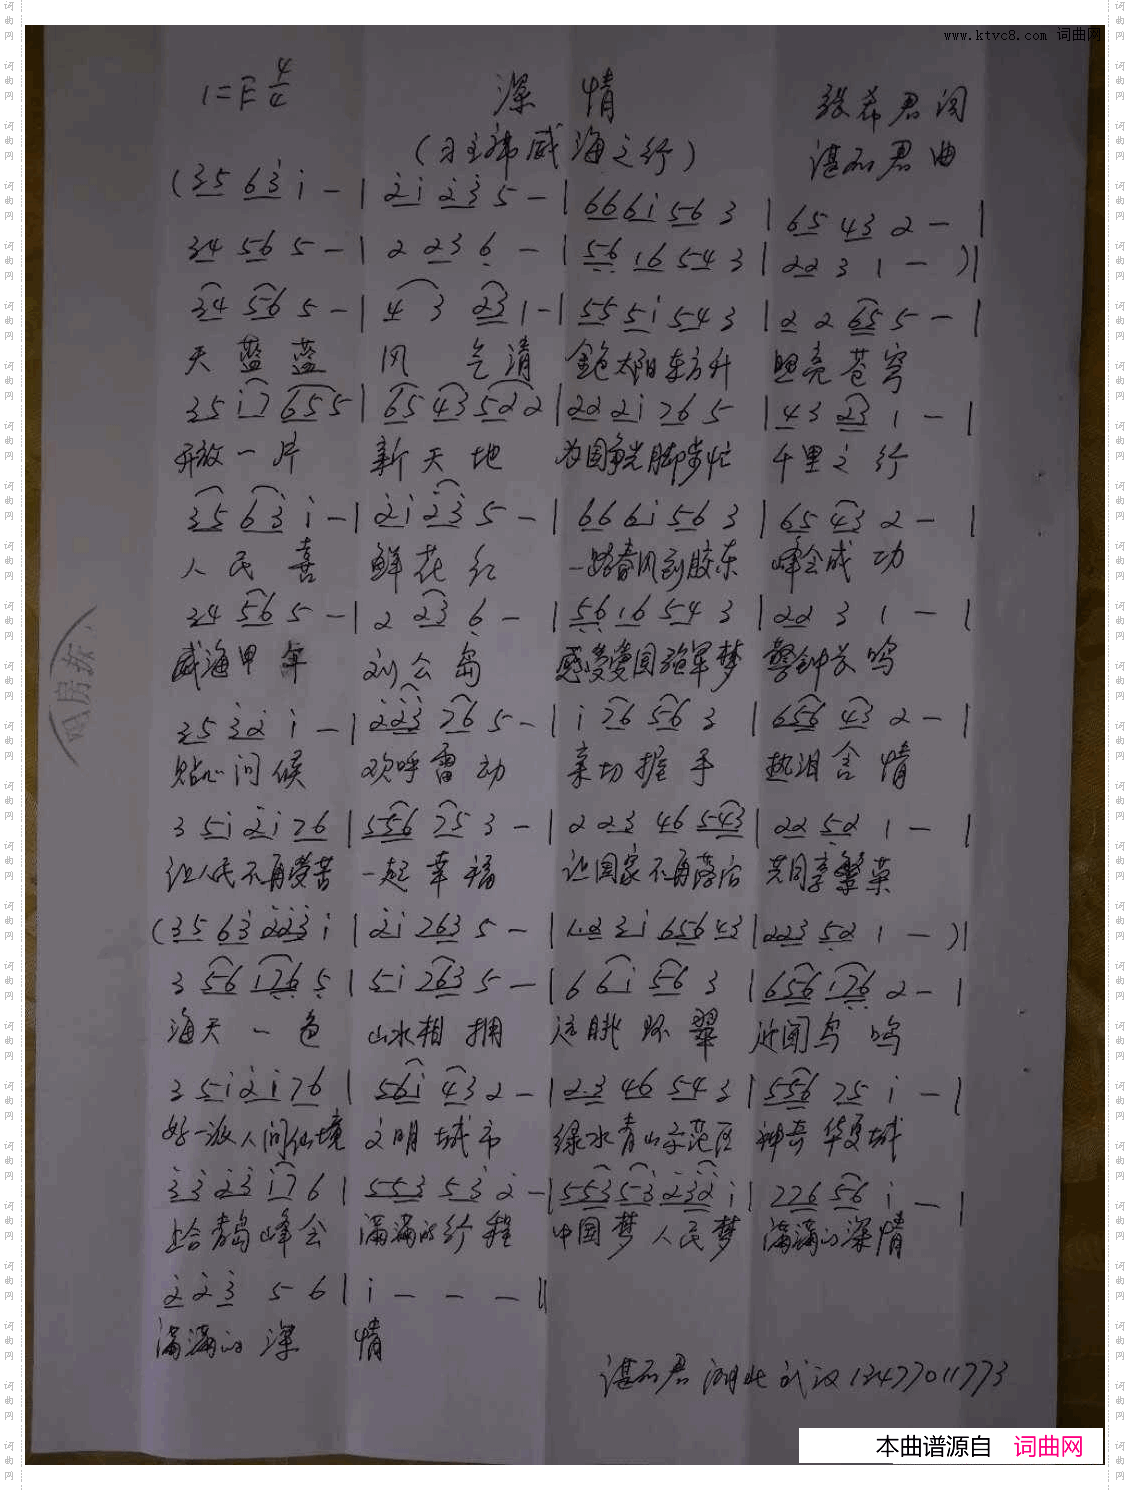 www.ktvc8.com 词曲网
1=E 4/4 深 情 张希君词
(习主席威海之行) 谌石君曲
(35 63 i - | 2i 23 5 - | 666i 56 3 | 65 43 2 - |
34 56 5 - | 2 23 6 - | 56 16 54 3 | 22 3 1 - )|
34 56 5 - | 4 3 23 1 - | 55 5i 54 3 | 2 2 65 5 - |
天 蓝 蓝 风 气 清 金色太阳东方升 照亮苍穹
35 i7 655 | 65 43 522 | 22 2i 76 5 | 43 23 1 - |
开放一片 新天地 为国争光脚步忙 千里之行
35 63 i - | 2i 23 5 - | 66 6i 56 3 | 65 43 2 - |
人民喜 鲜花红 一路春风到胶东 峰会成功
34 56 5 - | 2 23 6 - | 56 16 54 3 | 22 3 1 - |
威海甲午 刘公岛 感受爱国强军梦 警钟长鸣
35 32 i - | 223 76 5 - | i 76 56 3 | 656 43 2 - |
贴心问候 欢呼雷动 亲切握手 热泪含情
3 5i 2i 76 | 556 75 3 - | 2 23 46 543 | 22 52 1 - |
让人民不再受苦 一起幸福 让国家不再落后 共同享繁荣
(35 63 223 i | 2i 763 5 - | 1.2 3i 656 43 | 223 52 1 - )|
3 56 176 5 | 5i 763 5 - | 6 6i 56 3 | 656 176 2 - |
海天一色 山水相拥 远眺环翠 近闻鸟鸣
3 5i 2i 76 | 56i 43 2 - | 23 46 54 3 | 556 75 i - |
好一派人间仙境 文明城市 绿水青山示范区 神奇华夏城
33 23 i7 6 | 553 53 2 - | 553 53 232 i | 776 56 i - |
上合青岛峰会 满满的行程 中国梦人民梦 满满的深情
2 2 3 5 6 | i - - - ||
满满的深 情
谌石君 湖北武汉13477011773
本曲谱源自 词曲网